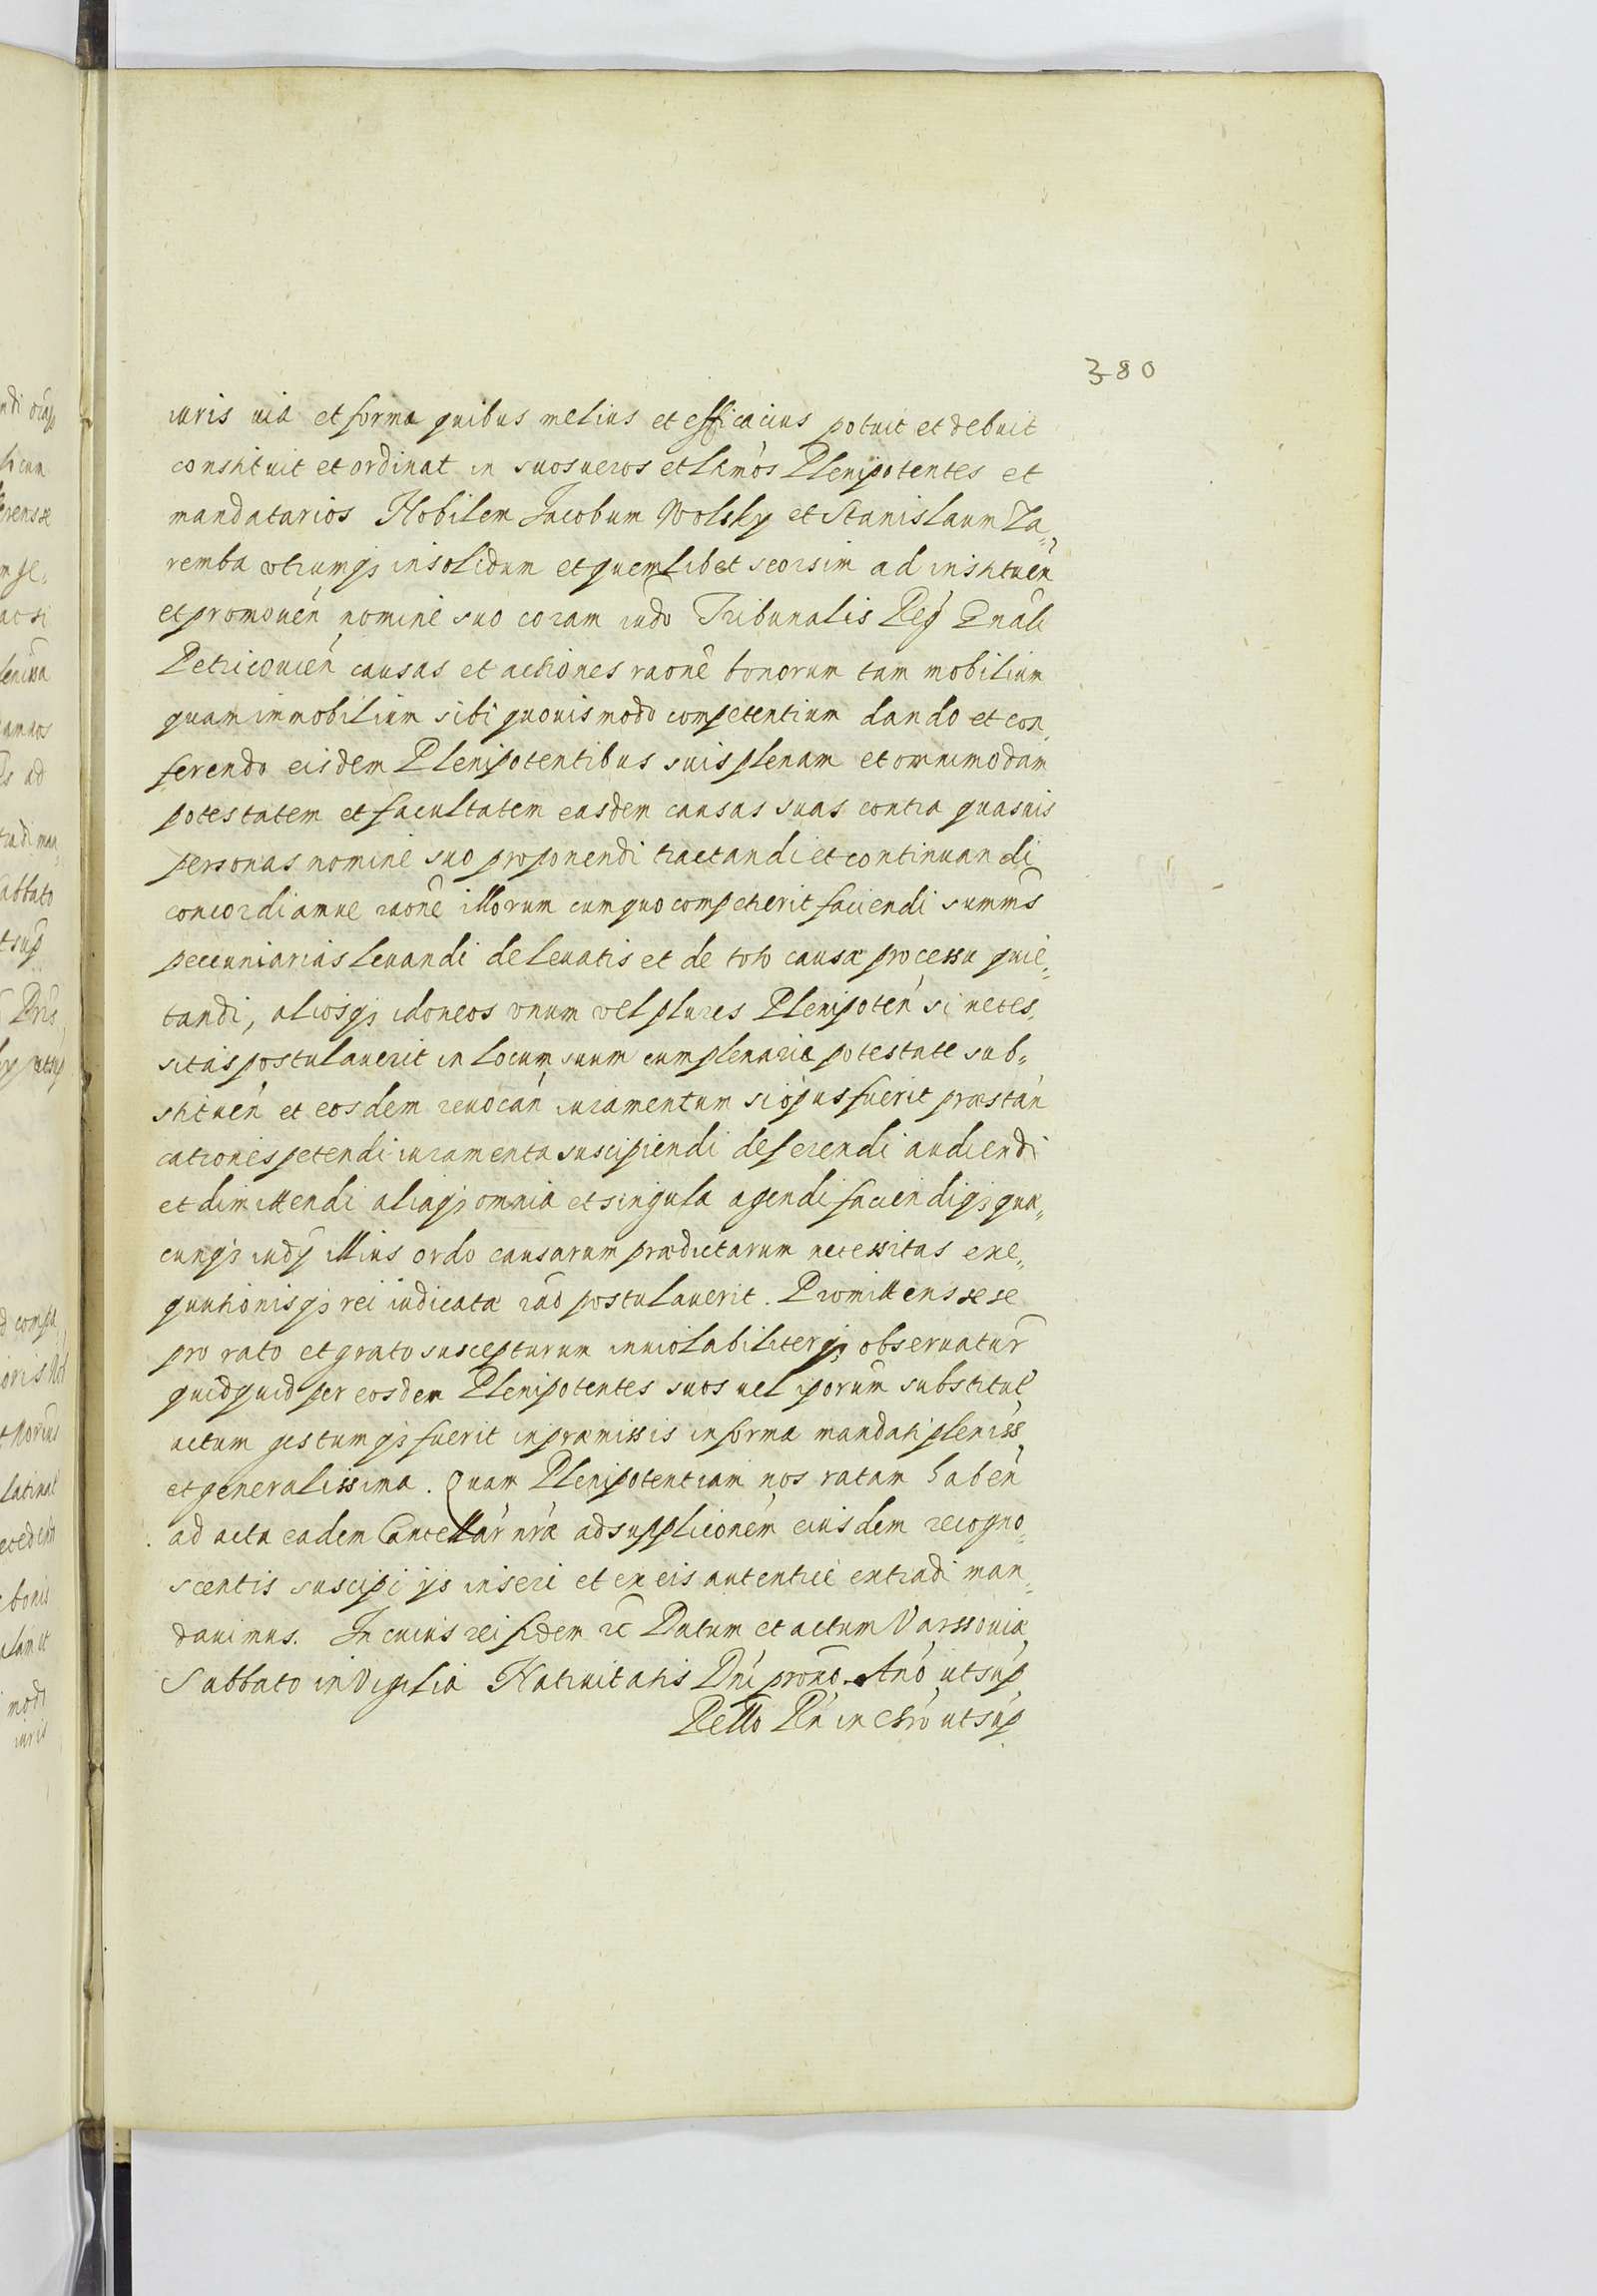 380
iuris uia et forma quibus melius et efficacius potuit et debuit
constituit et ordinat in suos ueros et Ltmos Plenipotentes et
mandatarios Nobilem Jacobum Wolsky et Stanislaum Za„
remba vtrumqȝ insolidum et quemlibet seorsim ad instituen̄
et promouen̄ nomine suo coram iudo Tribunalis Reg Gnāli
Petricouien̄ causas et actiones raōne bonorum tam mobilium
quam immobilium sibi quouis modo competentium dando et con„
ferendo eisdem Plenipotentibus suis plenam et omnimodam
potestatem et facultatem easdem causas suas contra quasuis
personas nomine suo proponendi tractandi et continuandi
concordiamue raōne illorum cum quo competierit faciendi summās
peccuniarias leuandi de leuatis et de toto causæ processu quie„
tandi, aliosqȝ idoneos vnum vel plures Plenipoten̄ si neces„
sitas postulauerit in locum suum cum plenaria potestate sub„
stituen̄ et eosdem reuocan̄ iuramentum si opus fuerit præstan̄
cationes petendi iuramenta suscipiendi deferendi audiendi
et dimittendi aliaqȝ omnia et singula agendi faciendiqȝ quæ„
cunqȝ iudy illius ordo causarum prædictarum necessitas exe„
quutionisqȝ rei iudicatæ rād postulauerit. Promittens sese
pro rato et grato suscepturum inuiolabiliterqȝ obseruatur̄
quidquid per eosdem Plenipotentes suos uel iporūm substitut̄
actum gestumqȝ fuerit in præmissis in forma mandati pleniss„
et generalissima. Quam Plenipotentiam nos ratam haben̄
ad acta eadem Cancellar̄ nr̄æ ad supplicōnem eiusdem recogno„
scentis suscipi ijs inseri et ex eis autentice extradi man„
dauimus. In cuius rei fidem rc̄ Datum et actum Varssouiæ
Sabbato in Vigilia Natiuitatis Dn̄i prox̄o Ano ut sup̄